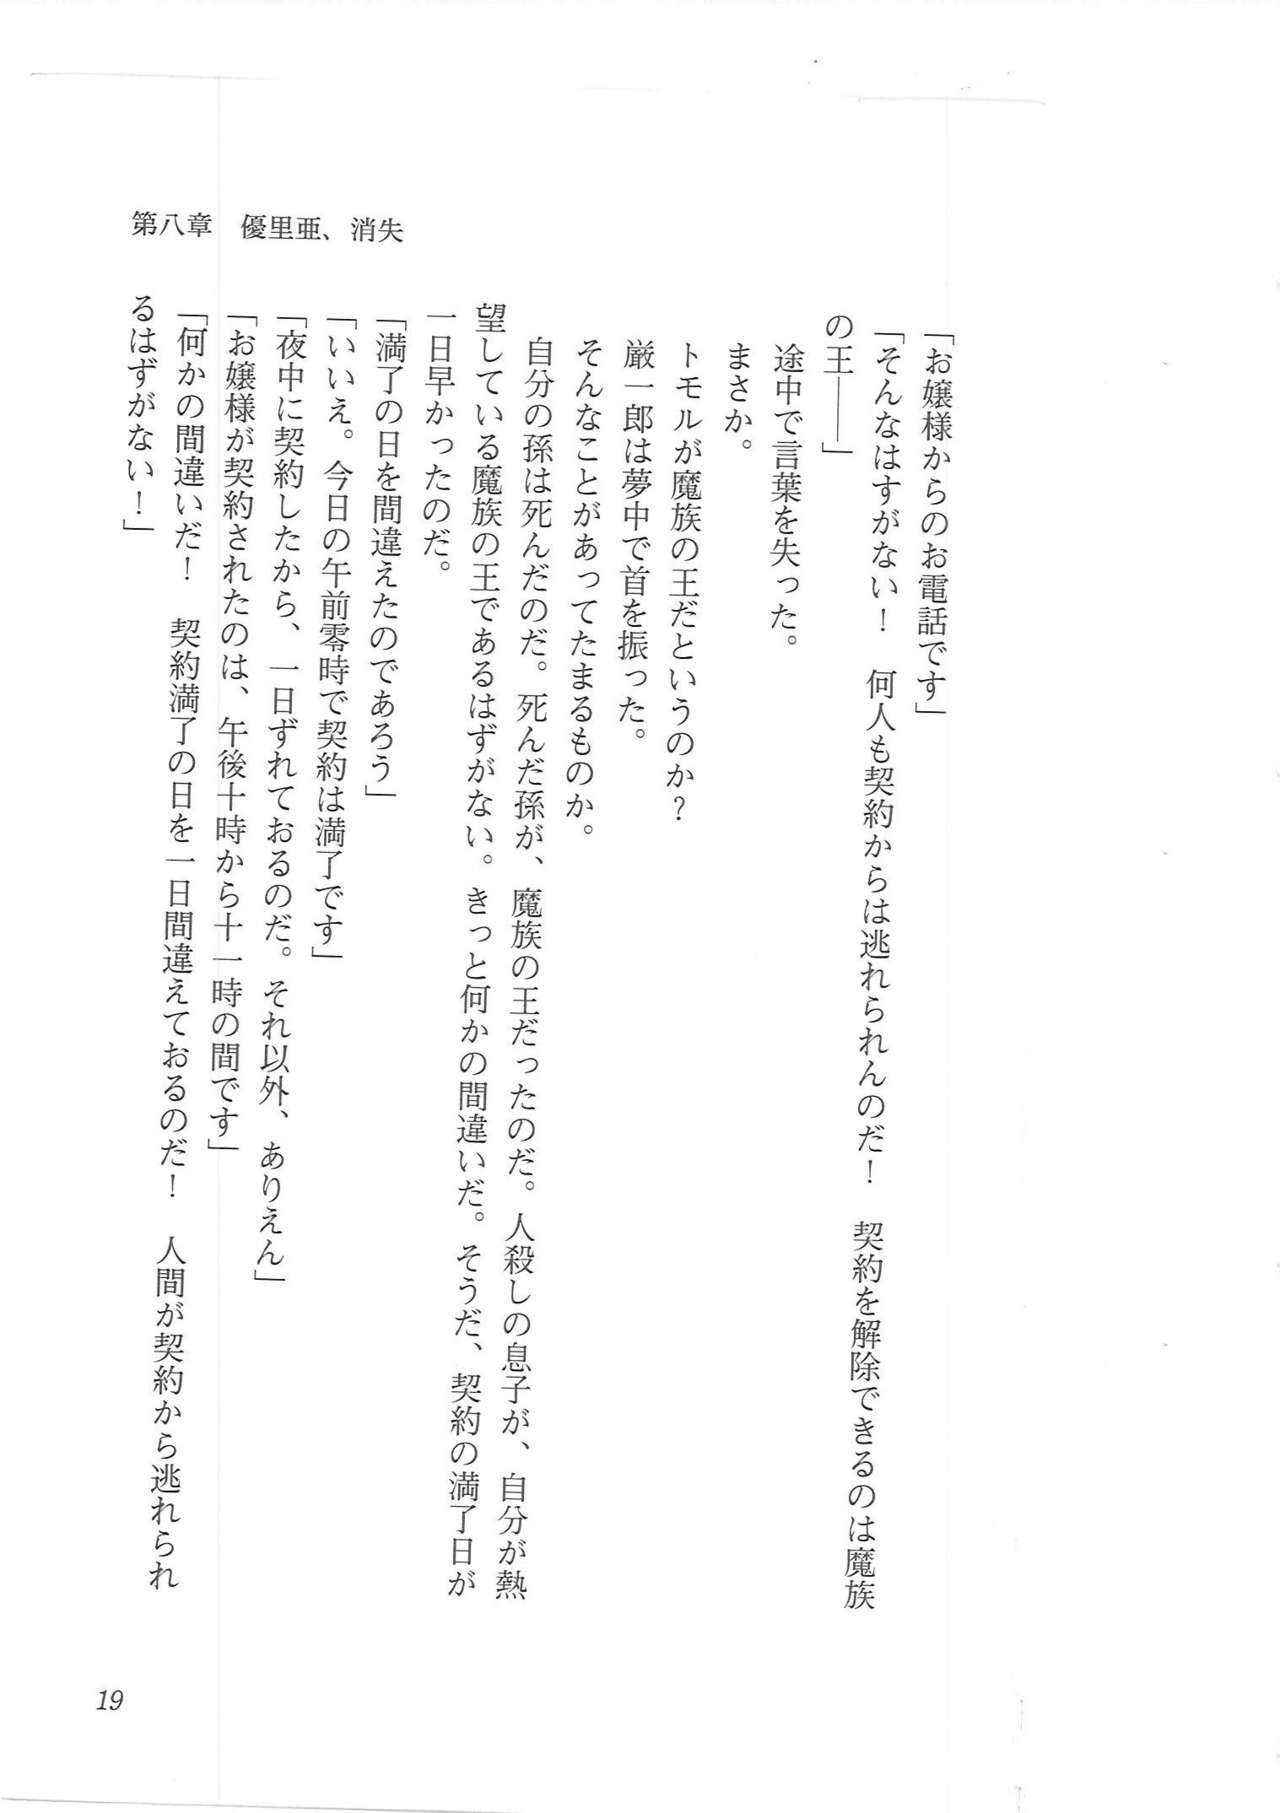 「お嬢様からのお電話です」
「そんなはずがない！　何人も契約からは逃れられんのだ！　契約を解除できるのは魔族
の王――」
途中で言葉を失った。
まさか。
トモルが魔族の王だというのか？
厳一郎は夢中で首を振った。
そんなことがあってたまるものか。
自分の孫は死んだのだ。死んだ孫が、魔族の王だったのだ。人殺しの息子が、自分が熱
望している魔族の王であるはずがない。きっと何かの間違いだ。そうだ、契約の満了日が
一日早かったのだ。
「満了の日を間違えたのであろう」
「いいえ。今日の午前零時で契約は満了です」
「夜中に契約したから、一日ずれておるのだ。それ以外、ありえん」
「お嬢様が契約されたのは、午後十時から十一時の間です」
「何かの間違いだ！　契約満了の日を一日間違えておるのだ！　人間が契約から逃れられ
るはずがない！」
第八章　優里亜、消失
19